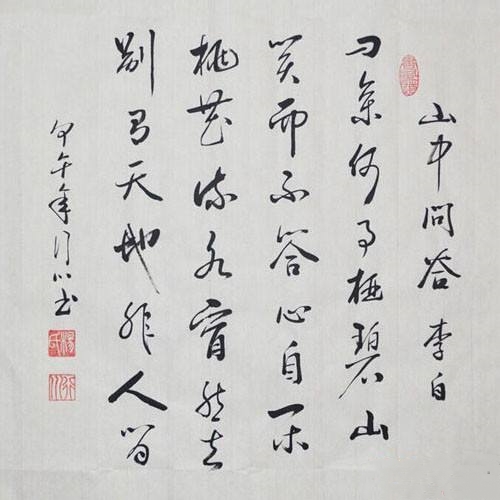 山中问答 李白
问余何事栖碧山
笑而不答心自闲
桃花流水窅然去
别有天地非人间
甲午年 书